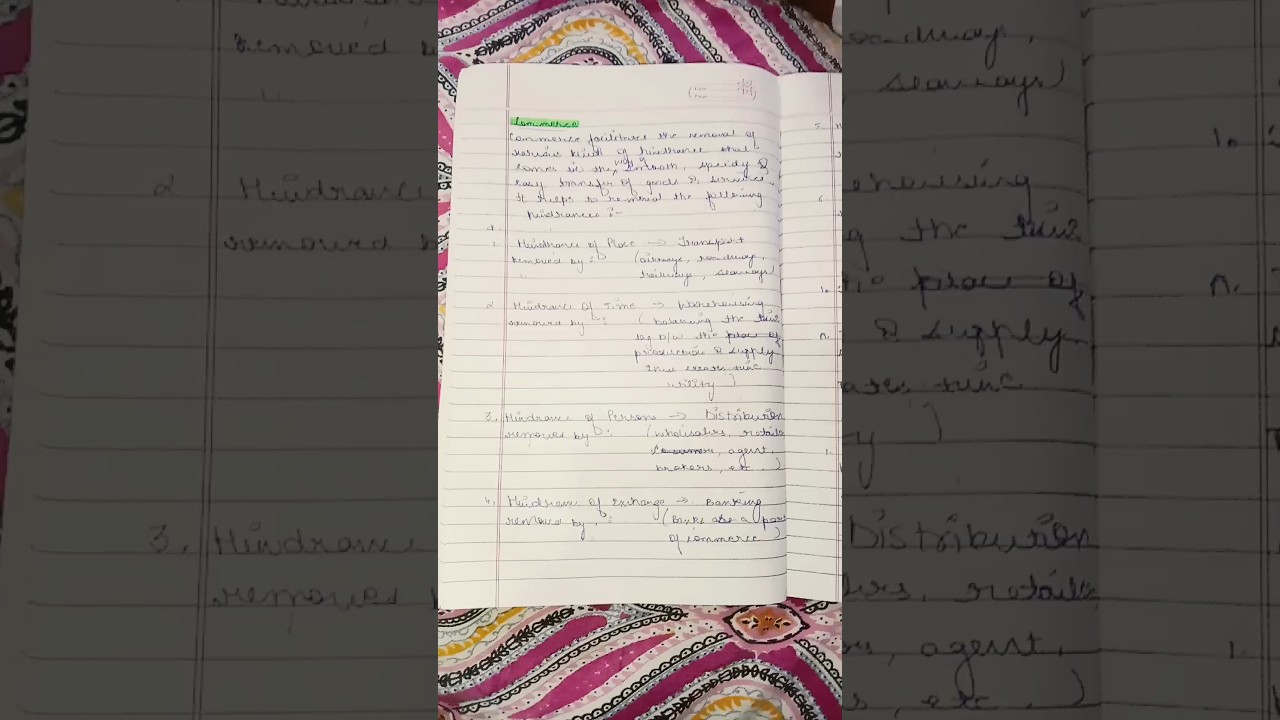 Commerce
Commerce facilitates the removal of
various kinds of hindrance that
comes in the way of smooth, speedy &
easy transfer of goods & services.
It helps to removal the following
hindrances :-
1. Hindrance of Place → Transport
removed by : (airways, roadways,
railways, seaways)
2 Hindrance Of Time → Warehousing
removed by : (balancing the time
lag b/w the place of
production & supply
thus creates time
utility)
3. Hindrance of Persons → Distribution
removes by : (wholesalers, retails
Consumers, agent,
brokers, etc.)
4. Hindrance of Exchange → Banking
removed by : (Banks are a part
of commerce)